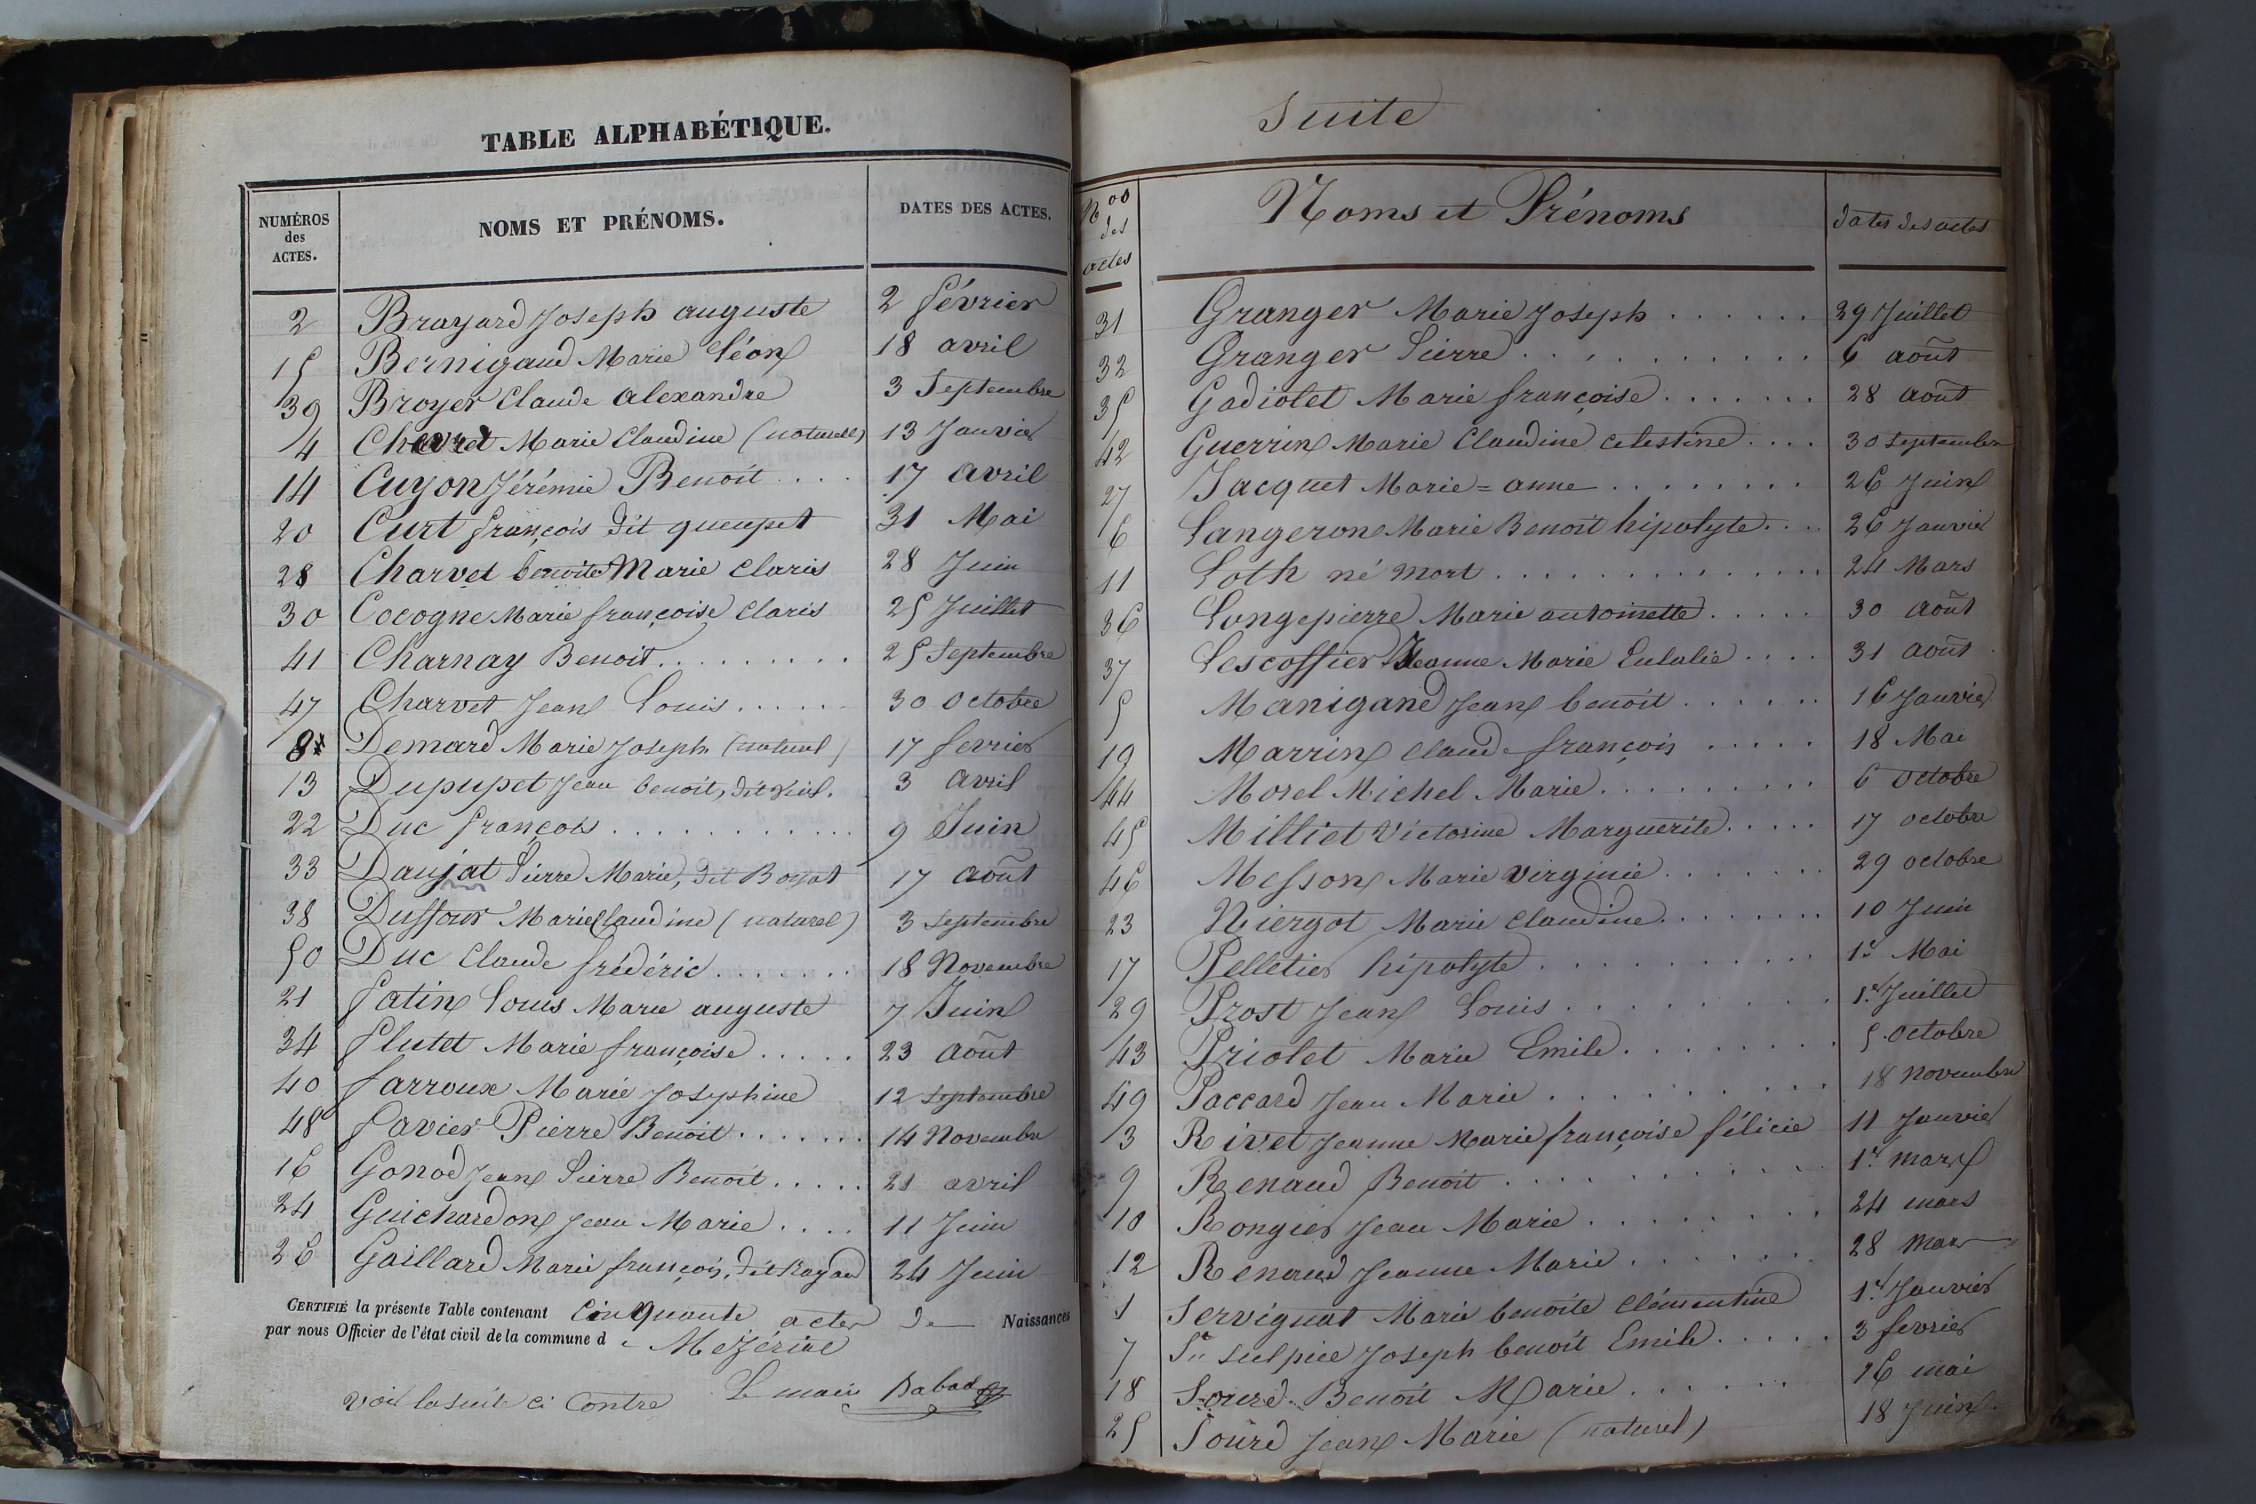 TABLE ALPHABÉTIQUE.
NUMÉROS des ACTES. NOMS ET PRÉNOMS. DATES DES ACTES.
2 Brayard Joseph auguste 2 février
15 Bernigaud Marie Léon 18 avril
39 Broyer Claude alexandre 3 Septembre
4 Charvet Marie Claudine (naturelle) 13 Janvier
14 Cuyon Jérémie Benoit .... 17 avril
20 Curt françois dit queupet 31 Mai
28 Charvet benoite Marie Claris 28 Juin
30 Cocogne Marie françoise Claris 25 Juillet
41 Charnay Benoit ......... 25 Septembre
47 Charvet Jean Louis ...... 30 Octobre
8 Demard Marie Joseph (naturel) 17 fevrier
13 Dupupet Jean benoit, dit 3 avril
22 Duc françois ............ 9 Juin
33 Daujat Pierre Marie, dit Boyat 17 août
38 Duffour Marie Claudine (naturel) 3 Septembre
50 Duc Claude frédéric ....... 18 Novembre
21 fatin Louis Marie auguste 7 Juin
34 flutet Marie françoise ..... 23 août
40 farroux Marie Josephine 12 Septembre
48 favier Pierre Benoit ....... 14 Novembre
16 Gonod Jean Pierre Benoit ..... 21 avril
24 Guichardon Jean Marie .... 11 Juin
26 Gaillard Marie françois, dit Rayard 24 Juin
CERTIFIÉ la présente Table contenant Cinquante actes de Naissances
par nous Officier de l'état civil de la commune d e Mézériat
Le maire Rabod
voir la suite ci Contre
Suite
Nos des actes Noms et Prénoms dates des actes
31 Granger Marie Joseph ...... 29 Juillet
32 Granger Pierre ........... 6 août
35 Gadiolet Marie françoise ....... 28 août
42 Guerrin Marie Claudine celestine .... 30 septembre
27 Jacquet Marie = anne ........ 26 Juin
6 Langeron Marie Benoit hipolyte .... 26 Janvier
11 Loth né mort .............. 24 Mars
36 Longepierre Marie antoinette ..... 30 août
37 Lescoffier Jeanne Marie Eulalie .... 31 août
5 Manigand Jean benoit ...... 16 Janvier
19 Marrin Claude françois ..... 18 Mai
44 Morel Michel Marie ......... 6 octobre
45 Milliet Victorine Marguerite ..... 17 octobre
46 Messon Marie Virginie ....... 29 octobre
23 Niergot Marie Claudine ........ 10 Juin
17 Pelletier hipolyte ........... 1er Mai
29 Prost Jean Louis .......... 1er Juillet
43 Priolet Marie Emile ......... 5 octobre
49 Paccard Jean Marie .......... 18 Novembre
3 Rivet Jeanne Marie françoise félicie 11 Janvier
9 Renaud Benoit ............ 1er mars
10 Rongier Jean Marie ......... 24 mars
12 Renaud Jeanne Marie ....... 28 Mars
1 Servignat Marie benoite Clémentine 1er Janvier
7 St Sulpice Joseph benoit Emile ..... 3 fevrier
18 Sourd Benoit Marie ...... 16 mai
25 Sourd Jean Marie (naturel) 18 Juin